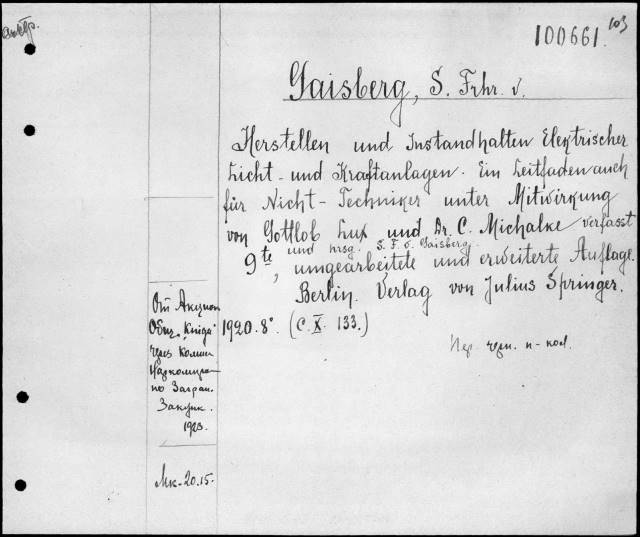 100661.
103
Gaisberg, S. Frhr. v.
Herstellen und Instandhalten Elektrischer
Licht- und Kraftanlagen. Ein Leitfaden auch
für Nicht-Techniker unter Mitwirkung
von Gottlob Lux und Dr. C. Michalke verfasst
und hrsg. S. F. v. Gaisberg.
9te, umgearbeitete und erweiterte Auflage.
Berlin. Verlag von Julius Springer.
1920. 8°. (C. X. 133.)
Пер. черн. п-кол.
От Акцион
Общ. "Kniga"
через Комис
Наркомпро
по Загран.
Закупк.
1923.
Мк-20.15.